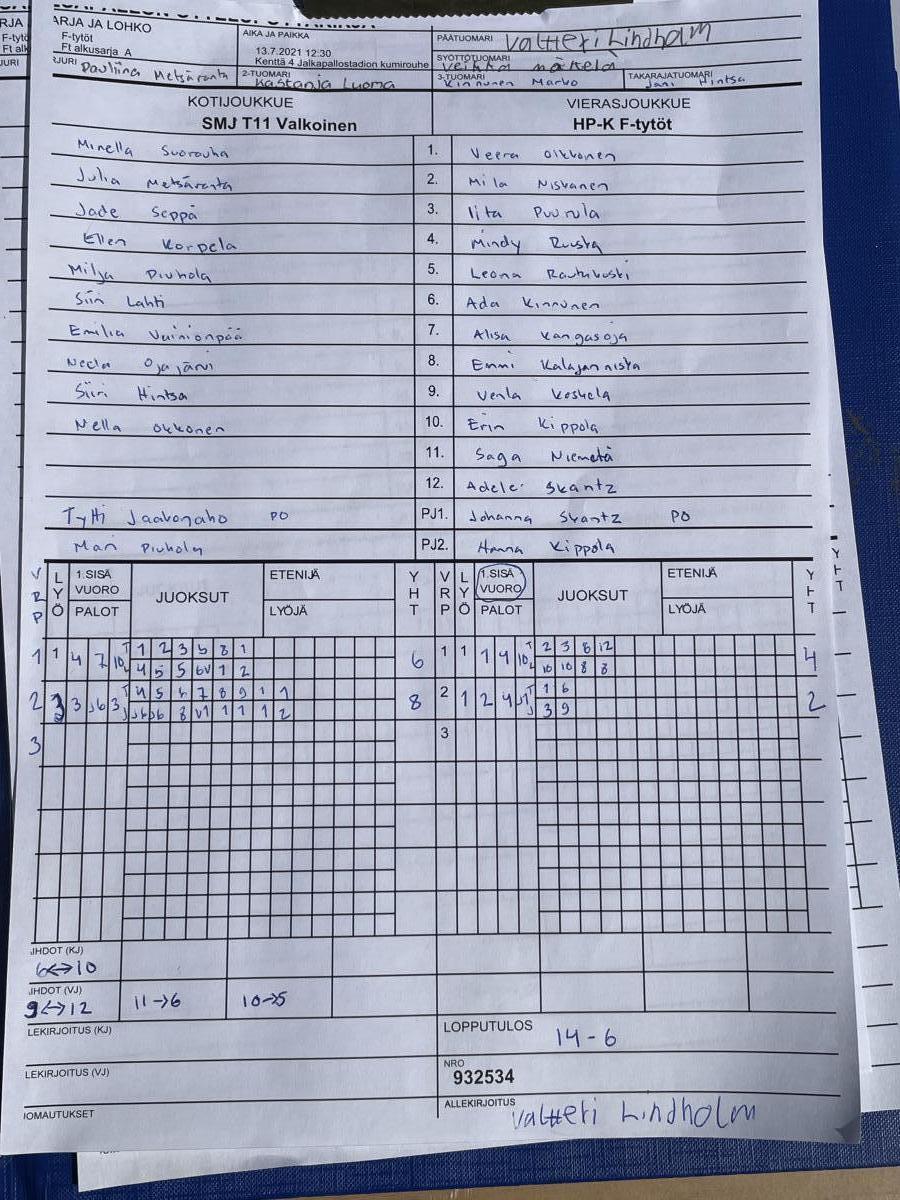 ARJA JA LOHKO
F-tytöt
Ft alkusarja A
AIKA JA PAIKKA
13.7.2021 12:30
Kenttä 4 Jalkapallostadion kumirouhe
PÄÄTUOMARI Valtteri Lindholm
SYÖTTÖTUOMARI
Veikka Mäkelä
URI Pauliina Metsäranta
2-TUOMARI
Kastanja Luoma
3-TUOMARI
Kinnunen Marko
TAKARAJATUOMARI
Jani Hintsa
KOTIJOUKKUE
SMJ T11 Valkoinen
VIERASJOUKKUE
HP-K F-tytöt
Minella Suorauha 1. Veera Oikkonen
Julia Metsäranta 2. Mila Niskanen
Jade Seppä 3. Iita Puurula
Ellen Korpela 4. Mindy Ruusta
Milja Piuhola 5. Leona Rautakoski
Siiri Lahti 6. Ada Kinnunen
Emilia Vainionpää 7. Alisa Kangasoja
Neela Ojajärvi 8. Emmi Kalajannista
Siiri Hintsa 9. Venla Koskela
Nella Okkonen 10. Erin Kippola
11. Saga Niemetä
12. Adele Skantz
Tytti Jaakonaho PO PJ1. Johanna Skantz PO
Mari Piuhola PJ2. Hanna Kippola
VRP LYÖ 1.SISÄ VUORO PALOT JUOKSUT ETENIJÄ LYÖJÄ YHT VRP LYÖ 1.SISÄ VUORO PALOT JUOKSUT ETENIJÄ LYÖJÄ YHT
1 1 4 7 10 1 2 3 5 8 1 6 1 1 1 9 10 2 3 8 12 4
4 5 5 6V 1 2 10 10 8 8
2 3 3 J6 3 4 5 6 7 8 9 1 1 8 2 1 2 4 1 6 2
J6 J6 8 V1 1 1 1 2 3 9
3 3
JHDOT (KJ)
6↔10
JHDOT (VJ)
9↔12 11→6 10→5
LEKIRJOITUS (KJ)
LOPPUTULOS
14-6
LEKIRJOITUS (VJ)
NRO
932534
IOMAUTUKSET
ALLEKIRJOITUS
Valtteri Lindholm